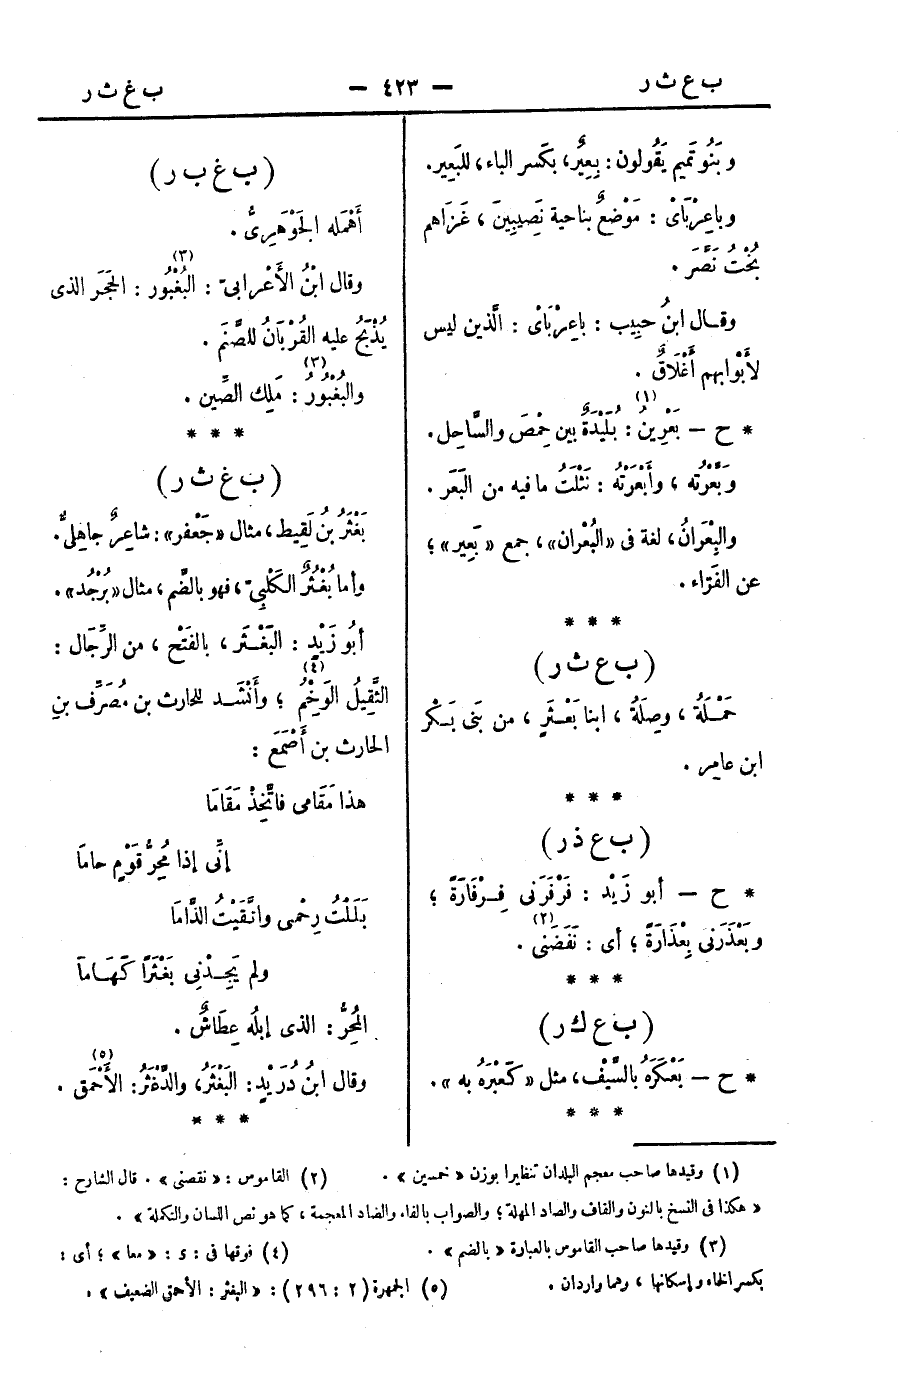 ب ع ث ر — ٤٢٣ — ب غ ث ر
وبَنُو تَمِيم يَقُولون : بِعِيرٌ، بكَسر الباء، للبَعِير.
وباعِرْبَاىْ : مَوْضعٌ بناحية نَصِيبِينَ ، غَزَاهم
بُخْتُ نَصَّرَ .
وقـال ابنُ حبيب : باعِرْبَاىْ : الَّذين ليس
لأَبْوابهم أَغْلَاقٌ .
* ح — بَعْرِينُ (١) : بُلَيْدَةٌ بين حِمْصَ والسَّاحِل.
وبَعَّرْتُه ، وأَبْعَرْتُهُ : نَثَلْتُ ما فيه من البَعَر .
والبِعْرَانُ، لغة فى «البُعْران»، جمع «بَعِير» ؛
عن الفَرّاء .
* * *
( ب ع ث ر )
حَمْـلَةُ ، وصِلَةُ ، ابنا بَعْـثَرٍ ، من بَنِى بَـكْر
ابن عامِر .
* * *
( ب ع ذ ر )
* ح — أبو زَيْد : فَرْفَرَنى فِـرْفَارَةً ؛
وبَعْذَرَنى بِعْذَارَةً ؛ أى : نَفَضَنى (٢) .
* * *
( ب ع ك ر )
* ح — بَعْكَرَهُ بالسَّيْف، مثل «كَعْبَرَهُ به» .
* * *
( ب غ ب ر )
أَهْمَله الجَوْهَرِىُّ .
وقال ابْنُ الأَعْرابىّ : البُغْبُور (٣) : الحَجَر الذى
يُذْبَحُ عليه القُرْبَانُ للصَّنَم .
والبُغْبُورُ (٣) : مَلِك الصِّين .
* * *
( ب غ ث ر )
بَغْثَرُ بنُ لَقِيط، مثال «جَعْفر» : شاعِرٌ جاهِلىٌّ.
وأما بُغْثُرٌ الكَلْبِىّ ، فهو بالضَّم ، مثال «بُرْجُد» .
أبُو زَيْدٍ : البَغْـثَر ، بالفَتْح ، من الرِّجَال :
الثَّقِيلُ الوَخْمُ (٤) ؛ وأَنْشَـد للحارث بن مُصَرِّف بن
الحارث بن أَصْمَعَ :
هذا مَقَامى فاتَّخِذْ مَقَامَا
إنِّى إذا مُحِرُّ قَوْمٍ حامَا
بَلَلْتُ رِحْمى واتَّقَيْتُ الذَّامَا
ولم يَجِـدْنِى بَغْثَرًا كَهَـامَا
المُحِرُّ : الذى إبلُه عِطَاشٌ .
وقال ابنُ دُرَيْدٍ : البَغْثَرُ، والدَّغْثَرُ : الأَحْمَق (٥) .
* * *
(١) وقيدها صاحب معجم البلدان تنظايرا بوزن « خمسين » . (٢) القاموس : « نقصنى » . قال الشارح :
« هكذا فى النسخ بالنون والقاف والصاد المهملة ؛ والصواب بالفاء والضاد المعجمة ، كما هو نص اللسان والتكملة » .
(٣) وقيدها صاحب القاموس بالعبارة « بالضم » . (٤) فوقها فى : ٤ : « معا » ؛ أى :
بكسر الخاء وإسكانها ، وهما واردان . (٥) الجمهرة (٢ : ٢٩٦) : « البغثر : الأحمق الضعيف » .